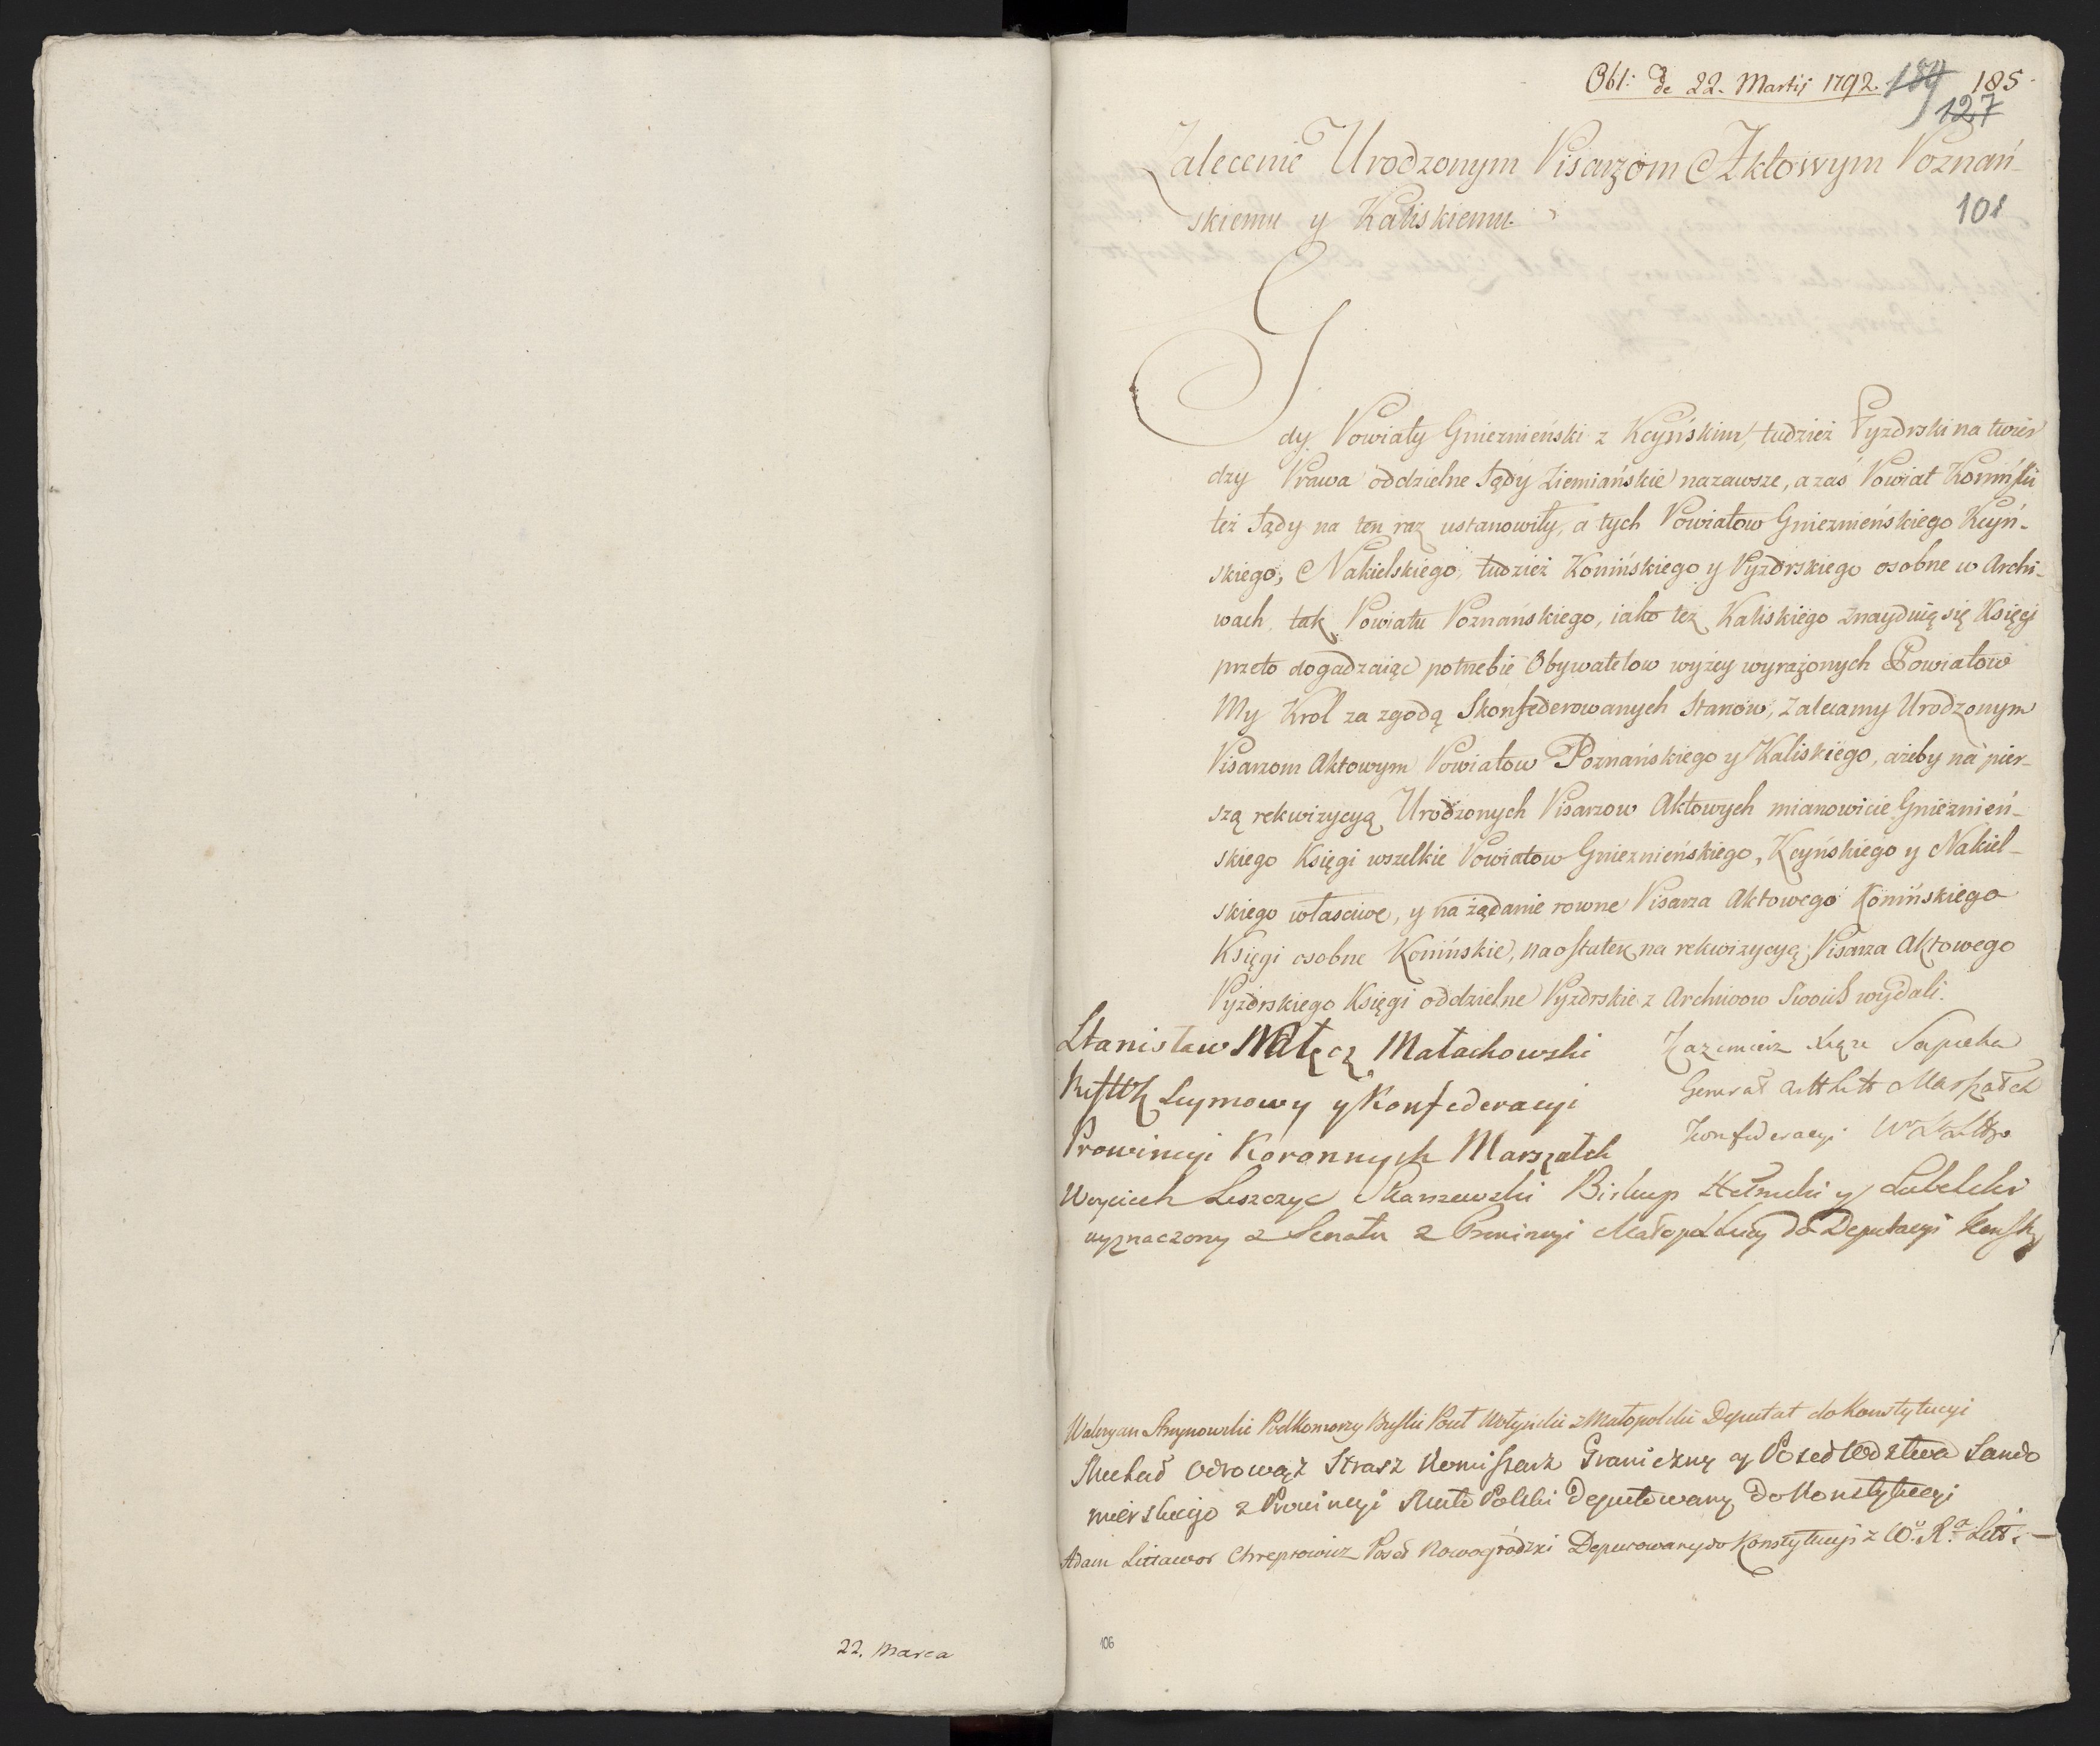 22. Marca
Obl: de 22. Martij 1792. 184 185
127
Zalecenie Urodzonym Pisarzom Aktowym Poznań-
skiemu y Kaliskiemu.
101
Gdy Powiaty Gnieznieński z Kcyńskim, tudzież Pyzdrski na twier
dzy Prawa oddzielne Sądy Ziemiańskie nazawsze, a zaś Powiat Koniński
też Sądy na ten raz ustanowiły, a tych Powiatow Gnieznieńskiego Kcyń-
skiego, Nakielskiego, tudzież Konińskiego y Pyzdrskiego osobne w Archi-
wach tak Powiatu Poznańskiego, iako też Kaliskiego znayduią się Księgi
przeto dogadzaiąc potrzebie Obywatelow wyżey wyrażonych Powiatow
My Krol za zgodą Skonfederowanych Stanow, Zalecamy Urodzonym
Pisarzom Aktowym Powiatow Poznańskiego y Kaliskiego, ażeby na pier-
szą rekwizycyą Urodzonych Pisarzow Aktowych mianowicie Gnieznień-
skiego Księgi wszelkie Powiatow Gnieznieńskiego, Kcyńskiego y Nakiel-
skiego własciwe, y na żądanie rowne Pisarza Aktowego Konińskiego
Księgi osobne Konińskie, naostatek na rekwizycyą Pisarza Aktowego
Pyzdrskiego Księgi oddzielne Pyzdrskie z Archiwow Swoich wydali.
Stanisław Nałęcz Małachowski
Seymowy y Konfederacyi
Prowincyi Koronnych Marszałek
Kazimierz Xiąże Sapieha
Generał Artt Litt Marszałek
Konfederacyi
Woyciech Leszczyc Skarszewski Biskup Chełmski y Lubelski
wyznaczony z Senatu z Prowincyi Małopolskiey do Deputacyi
Waleryan Stroynowski Podkomorzy Buski Poseł Wołyński z Małopolski Deputat do Konstytucyi
Michał Odrowąż Strasz Komissarz Graniczny y Poseł Wodztwa Sando
mierskiego z Prowincyi Mało Polski Deputowany Do Konstytucyi
Adam Littawor Chreptowicz Poseł Nowogródzki Deputowany do Konstytucyi z W. X. Litt. —
106